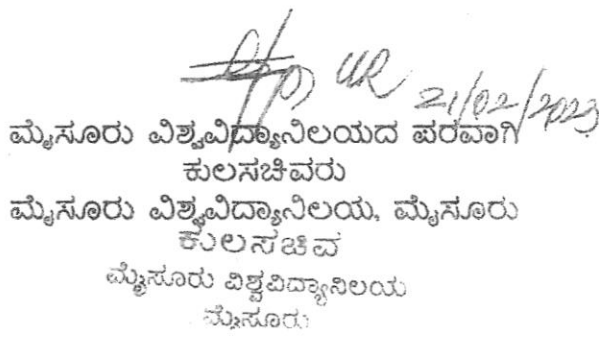 UR 21/02/2023
ಮೈಸೂರು ವಿಶ್ವವಿದ್ಯಾನಿಲಯದ ಪರವಾಗಿ
ಕುಲಸಚಿವರು
ಮೈಸೂರು ವಿಶ್ವವಿದ್ಯಾನಿಲಯ, ಮೈಸೂರು
ಕುಲಸಚಿವ
ಮೈಸೂರು ವಿಶ್ವವಿದ್ಯಾನಿಲಯ
ಮೈಸೂರು